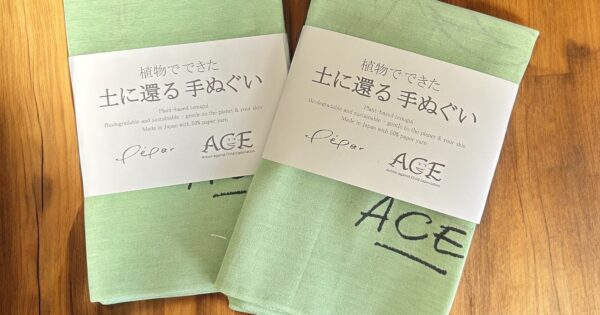 植物でできた
土に還る 手ぬぐい
Plant-based tenugui
Biodegradable and sustainable - gentle to the planet & your skin
Made in Japan with 50% paper yarn
Pépar
ACE
Action against Child Exploitation
植物でできた
土に還る 手ぬぐい
Plant-based tenugui
Biodegradable and sustainable - gentle to the planet & your skin
Made in Japan with 50% paper yarn
Pépar
ACE
Action against Child Exploitation
ACE